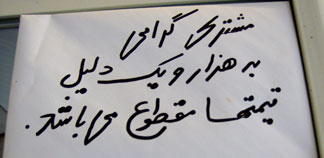 مشتری گرامی
به هزار و یک دلیل
قیمتها مقطوع می باشد.